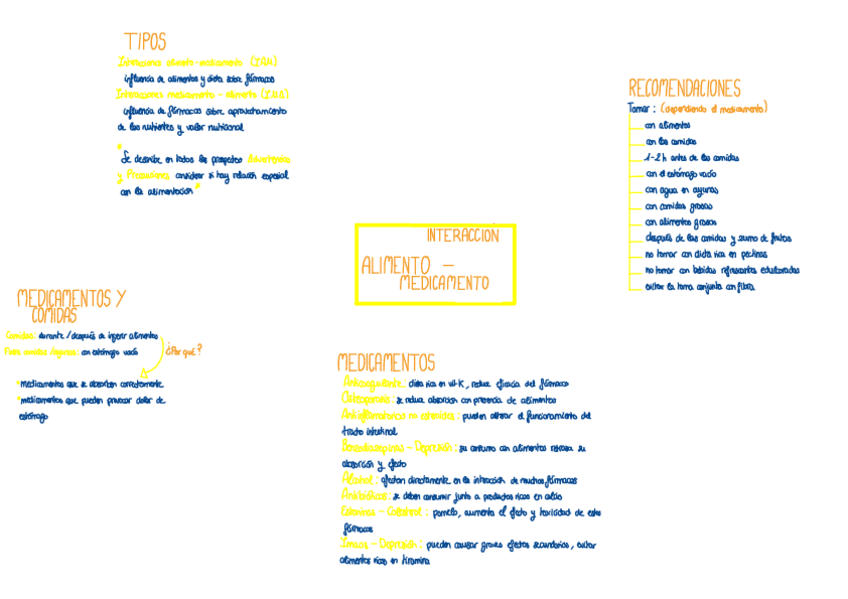 TIPOS
Interacciones alimento-medicamento (I.A.M)
influencia de alimentos y dieta sobre fármacos
Interacciones medicamento - alimento (I.M.A)
influencia de fármacos sobre aprovechamiento
de los nutrientes y valor nutricional
"
Se describe en todos los prospectos Advertencias
y Precauciones considerar si hay relación especial
con la alimentación"
RECOMENDACIONES
Tomar : (dependiendo el medicamento)
con alimentos
con las comidas
1-2 h antes de las comidas
con el estómago vacío
con agua en ayunas
con comidas grasas
con alimentos grasos
después de las comidas y zumo de frutas
no tomar con dieta rica en pectinas
no tomar con bebidas refrescantes edulcoradas
evitar la toma conjunta con fibra
INTERACCIÓN
ALIMENTO -
MEDICAMENTO
MEDICAMENTOS Y
COMIDAS
Comidas: durante / después de ingerir alimentos
comidas / ayunas: con estómago vacío
¿Por qué?
*medicamentos que se absorben correctamente
*medicamentos que pueden provocar dolor de
estómago
MEDICAMENTOS
Anticoagulante: dieta rica en vit K, reduce eficacia del fármaco
Osteoporosis: se reduce absorción con presencia de alimentos
Antiinflamatorios no esteroides: pueden alterar el funcionamiento del
tracto intestinal
Benzodiacepinas - Depresión: su consumo con alimentos retrasa su
absorción y efecto
Alcohol: afectan directamente en la interacción de muchos fármacos
Antibióticos: se deben consumir junto a productos ricos en calcio
Estatinas - Colesterol: pomelo, aumenta el efecto y toxicidad de estos
fármacos
Imaos - Depresión: pueden causar graves efectos secundarios, evitar
alimentos ricos en tiramina